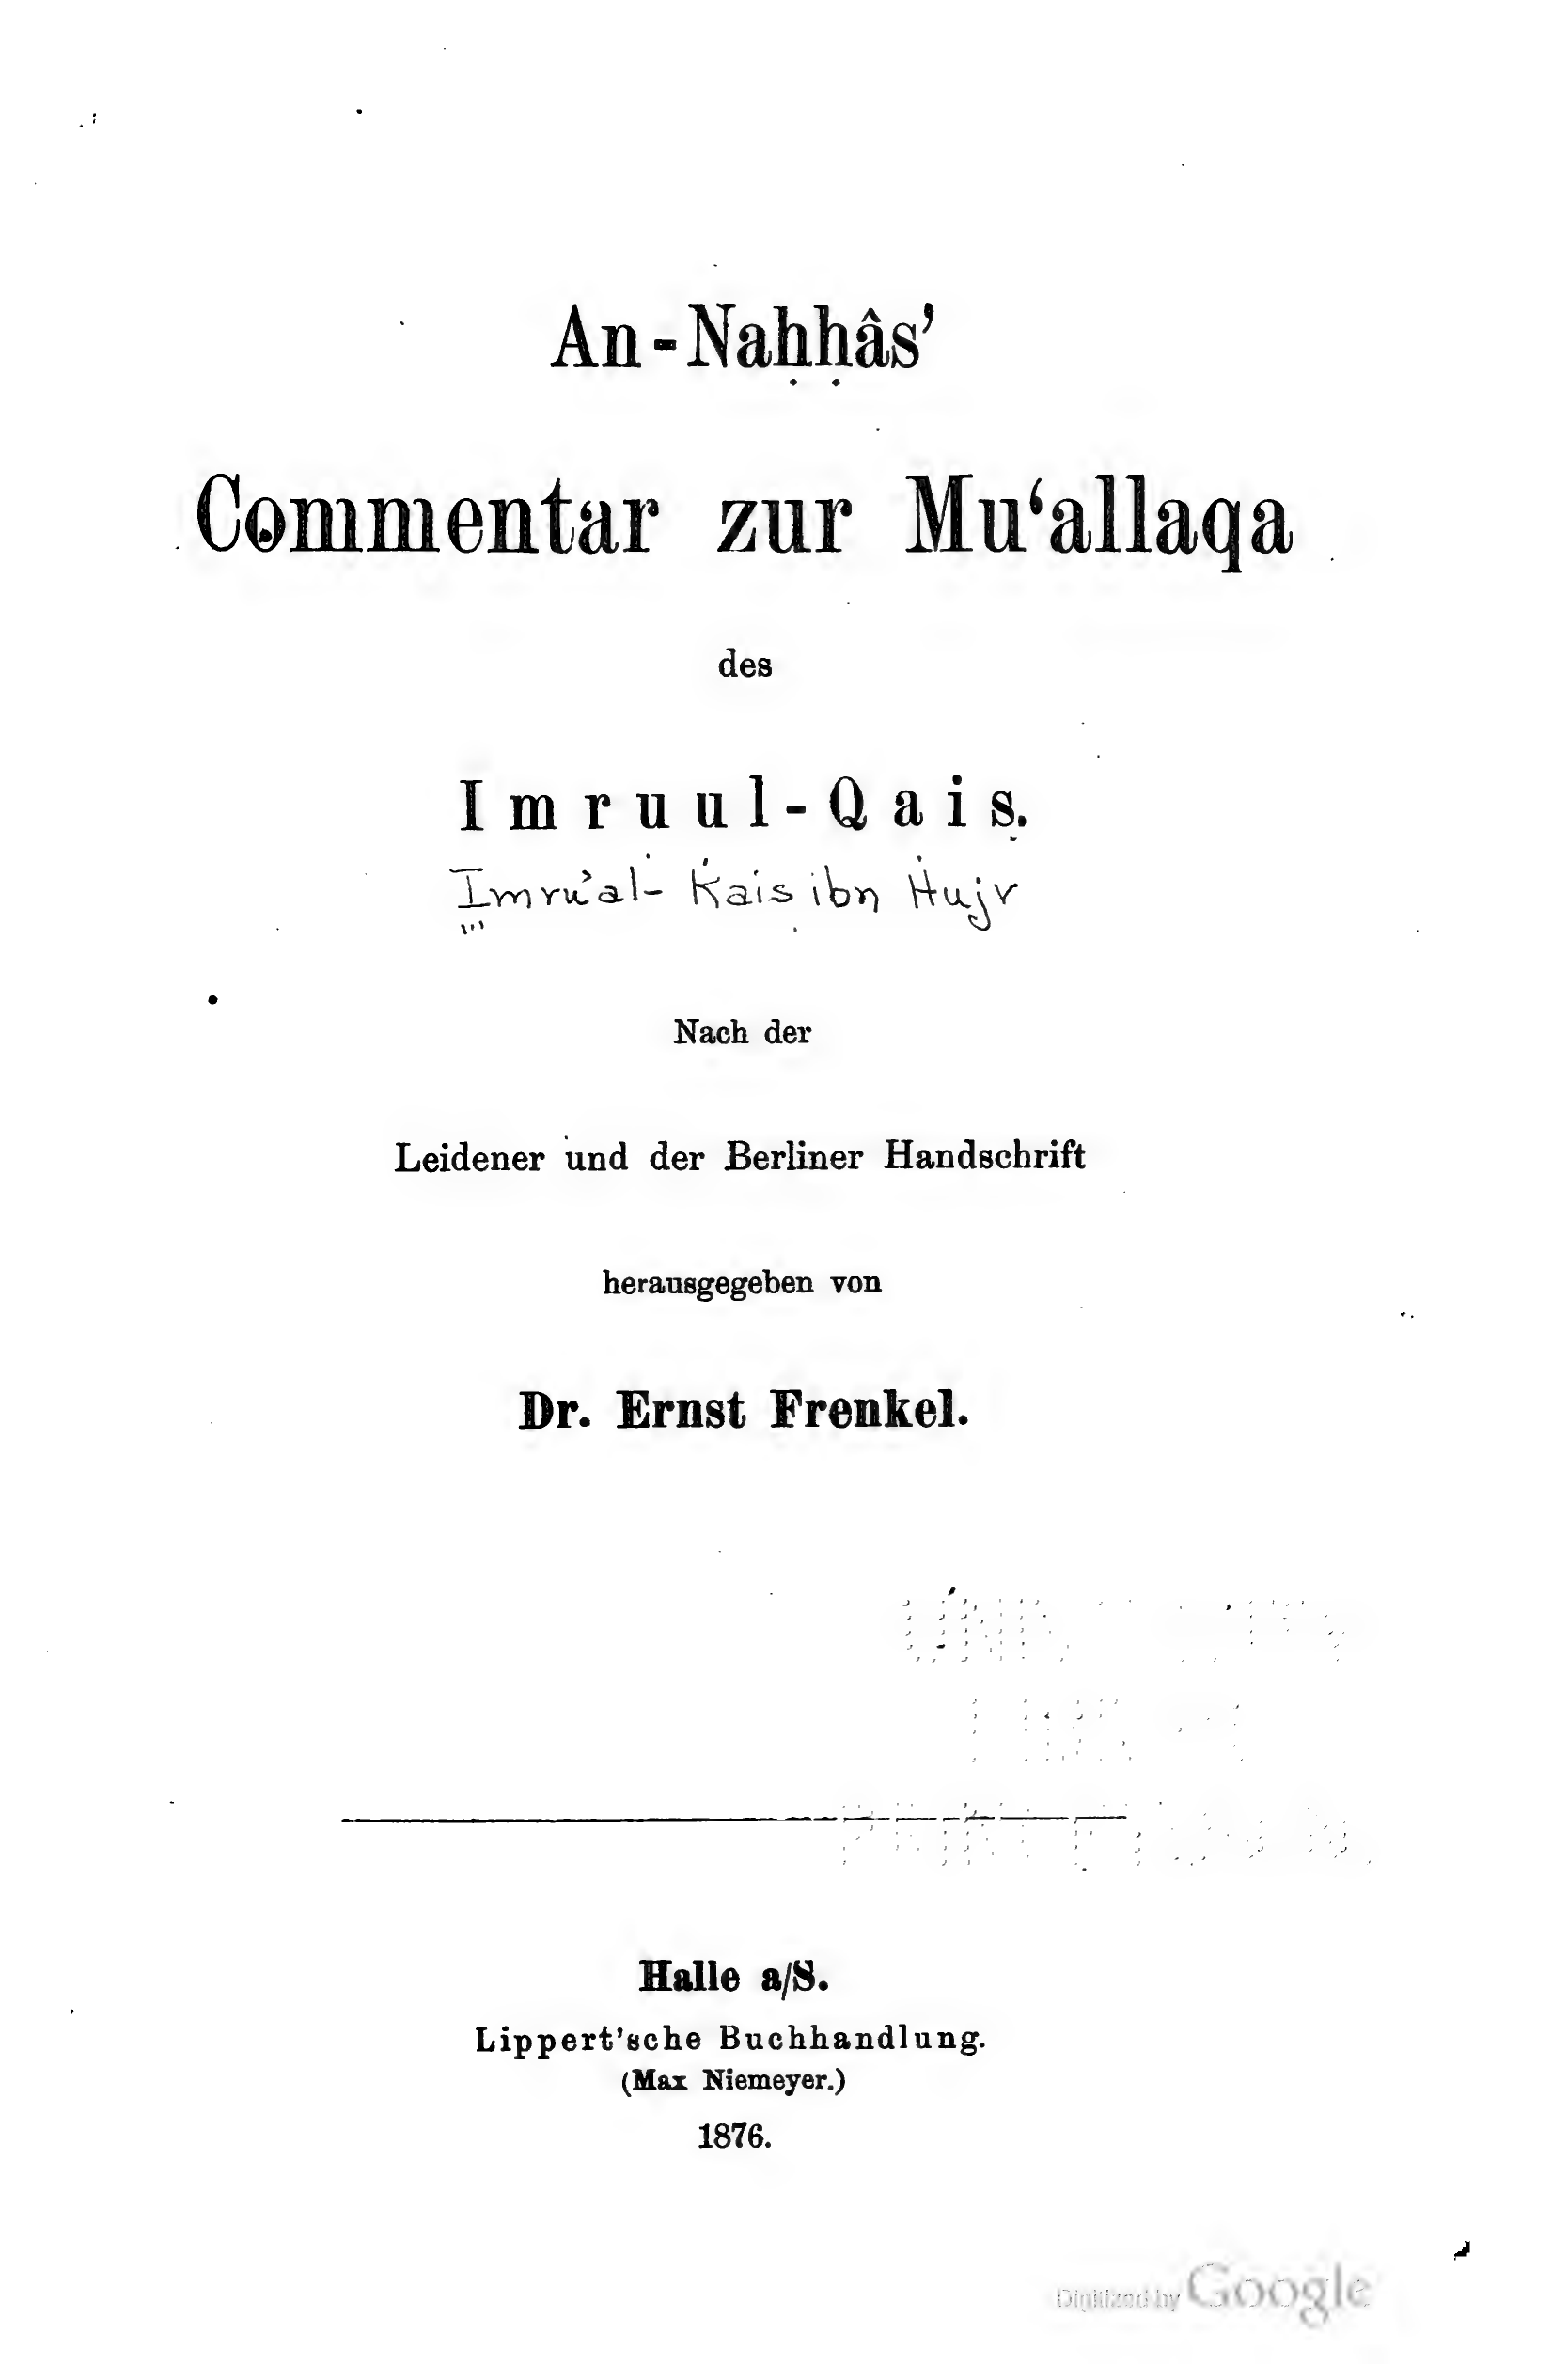 An-Naḥḥâs’
Commentar zur Mu‘allaqa
des
Imruul-Qais.
Imru'al-Kais ibn Hujr
Nach der
Leidener und der Berliner Handschrift
herausgegeben von
Dr. Ernst Frenkel.
Halle a/S.
Lippert’sche Buchhandlung.
(Max Niemeyer.)
1876.
Digitized by Google